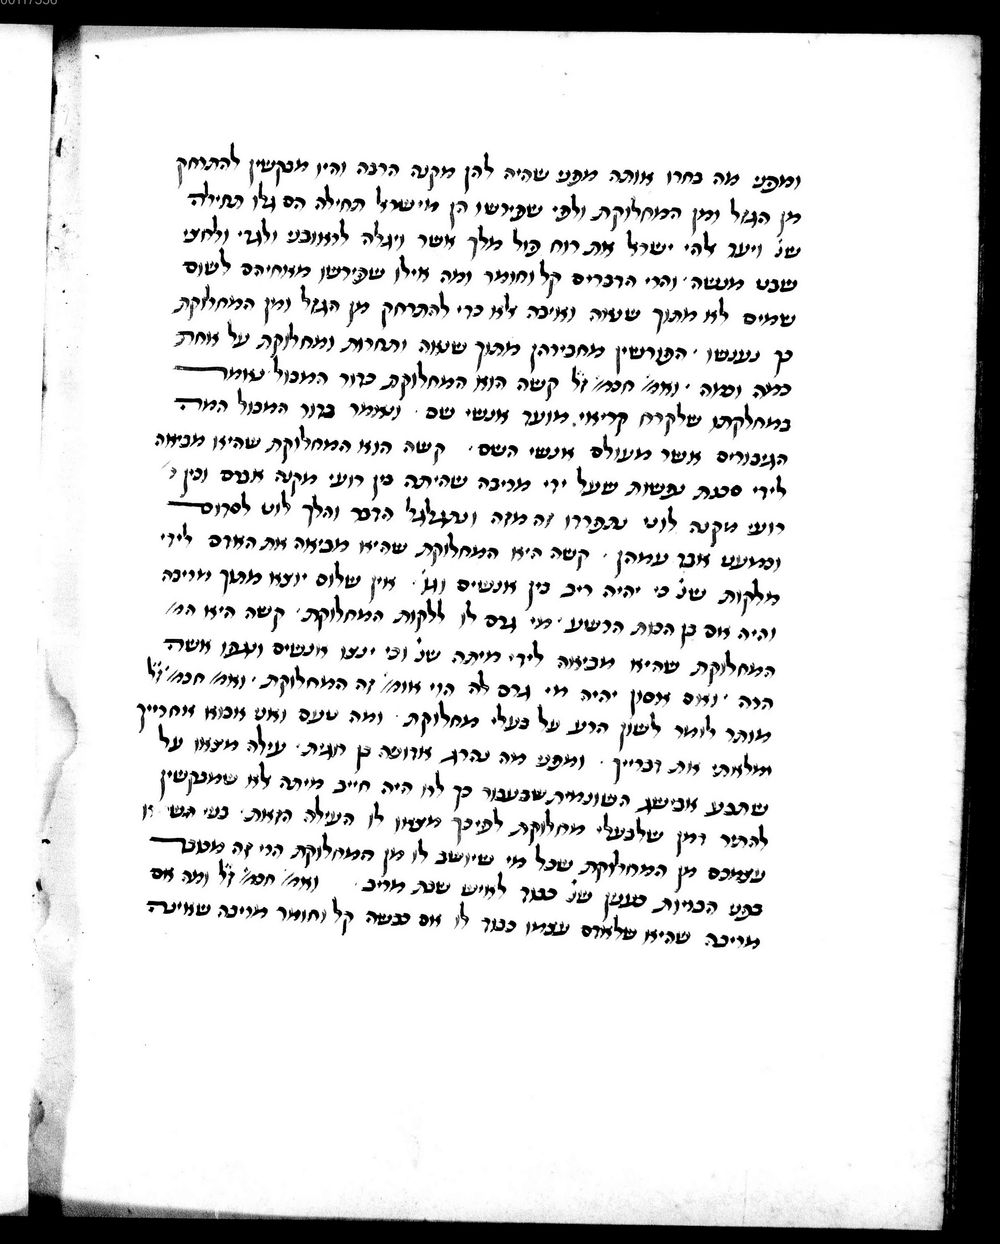 ומפני מה בחרו אותה מפני שהיה להן מקנה הרבה והיו מבקשין להתרחק
מן הגזל ומן המחלוקת ולפי שפירשו הן מישראל תחילה הם גלו תחילה
שנ' ויער אלהי ישראל את רוח פול מלך אשר ויגלה לראובני ולגדי ולחצי
שבט מנשה והרי הדברים קל וחומר ומה אילו שפירשו מאחיהם לשום
שמים לא מתוך שנאה ואיבה אלא כדי להתרחק מן הגזל ומן המחלוקת
כך נענשו הפורשין מחביריהן מתוך שנאה ותחרות ומחלוקת על אחת
כמה וכמה ואמ' חכמ' ז"ל קשה הוא המחלוקת כדור המבול נאמר
במחלקתו שלקרח קריאי מועד אנשי שם ונאמר בדור המבול המה
הגיבורים אשר מעולם אנשי השם קשה הוא המחלוקת שהיא מביאה
לידי סכנת נפשות שעל ידי מריבה שהיתה בין רועי מקנה אברם ובין
רועי מקנה לוט נתפרדו זה מזה ונתגלגל הדבר והלך לוט לסדום
וכמעט אבד עמהן קשה היא המחלוקת שהיא מביאה את האדם לידי
מלקות שנ' כי יהיה ריב בין אנשים וגו' אין שלום יוצא מתוך מריבה
והיה אם בן הכות הרשע מי גרם לו ללקות המחלוקת קשה היא המ'
המחלוקת שהיא מביאה לידי מיתה שנ' וכי ינצו אנשים ונגפו אשה
הרה ואם אסון יהיה מי גרם לה הוי אומ' זה המחלוקת ואמ' חכמ' ז"ל
מותר לומר לשון הרע על בעלי מחלוקת ומה טעם ואני אבוא אחרייך
ומלאתי את דברייך ומפני מה נהרג אדוניה בן חגית עילה מצאו על
שתבע אבישג השונמית שבעבור כך לא היה חייב מיתה לא שמבקשין
להתיר דמן שלבעלי מחלוקת לפיכך מצאו לו העילה הזאת
עצמכם מן המחלוקת שכל מי שיושב לו מן המחלוקת הרי זה
בפני הבריות כענין שנ' כבוד לאיש שבת מריב ואמ' חכמ' ז"ל ומה אם
מריבה שהיא שלאדם עצמו כבוד לו אם כבשה קל וחומר מריבה שאינה